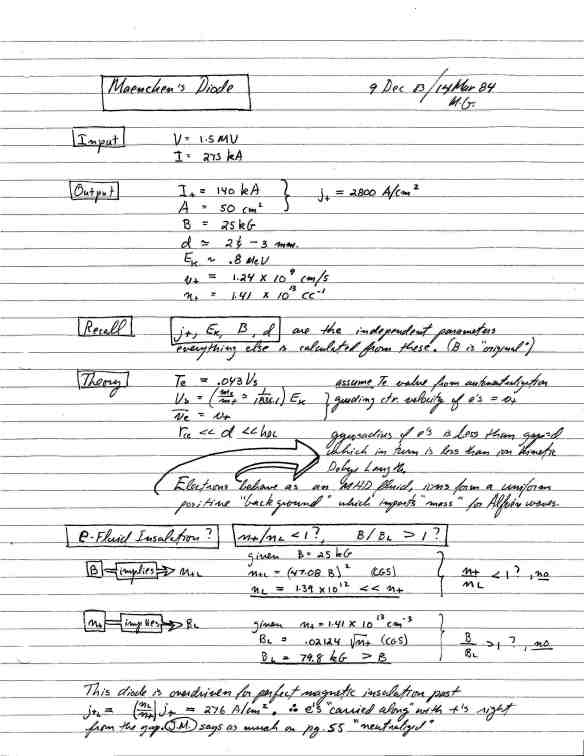 Maenchen's Diode
9 Dec 83/14 Mar 84
M.G.
Input
V = 1.5 MV
I = 275 kA
Output
I+ = 140 kA } j+ = 2800 A/cm²
A = 50 cm²
B = 25 kG
d ≈ 2½ - 3 mm.
EK ~ .8 MeV
v+ = 1.24 x 10⁹ cm/s
n+ = 1.41 x 10¹³ cc⁻¹
Recall
j+, EK, B, d are the independent parameters
everything else is calculated from these. (B is "original")
Theory
Te = .043 Vs assume Te value from
= ( = 1/1836.1) EK } guiding ctr. velocity of e's = v+
v̄e = v+
rce << d << gyroradius of e's is less than gap=d
which in turn is less than ion kinetic
Debye Length.
Electrons behave as an MHD fluid, ions form a uniform
positive "background" which imparts "mass" for Alfvén waves.
e-Fluid Insulation? n+/nL < 1?, B/BL > 1?
given B = 25 kG
B implies n+L n+L = (47.08 B)² (CGS) } n+/nL < 1?, no
nL = 1.39 x 10¹² << n+
n+ implies BL given n+ = 1.41 x 10¹³ cm⁻³
BL = .02124 √n+ (CGS) } B/BL > 1?, no
BL = 79.8 kG > B
This diode is overdriven for perfect magnetic insulation past
j+L = (nL/n+) j+ = 276 A/cm². ∴ e's "carried along" with +'s right
from the gap. J.M. says as much on pg. 55 "neutralized"